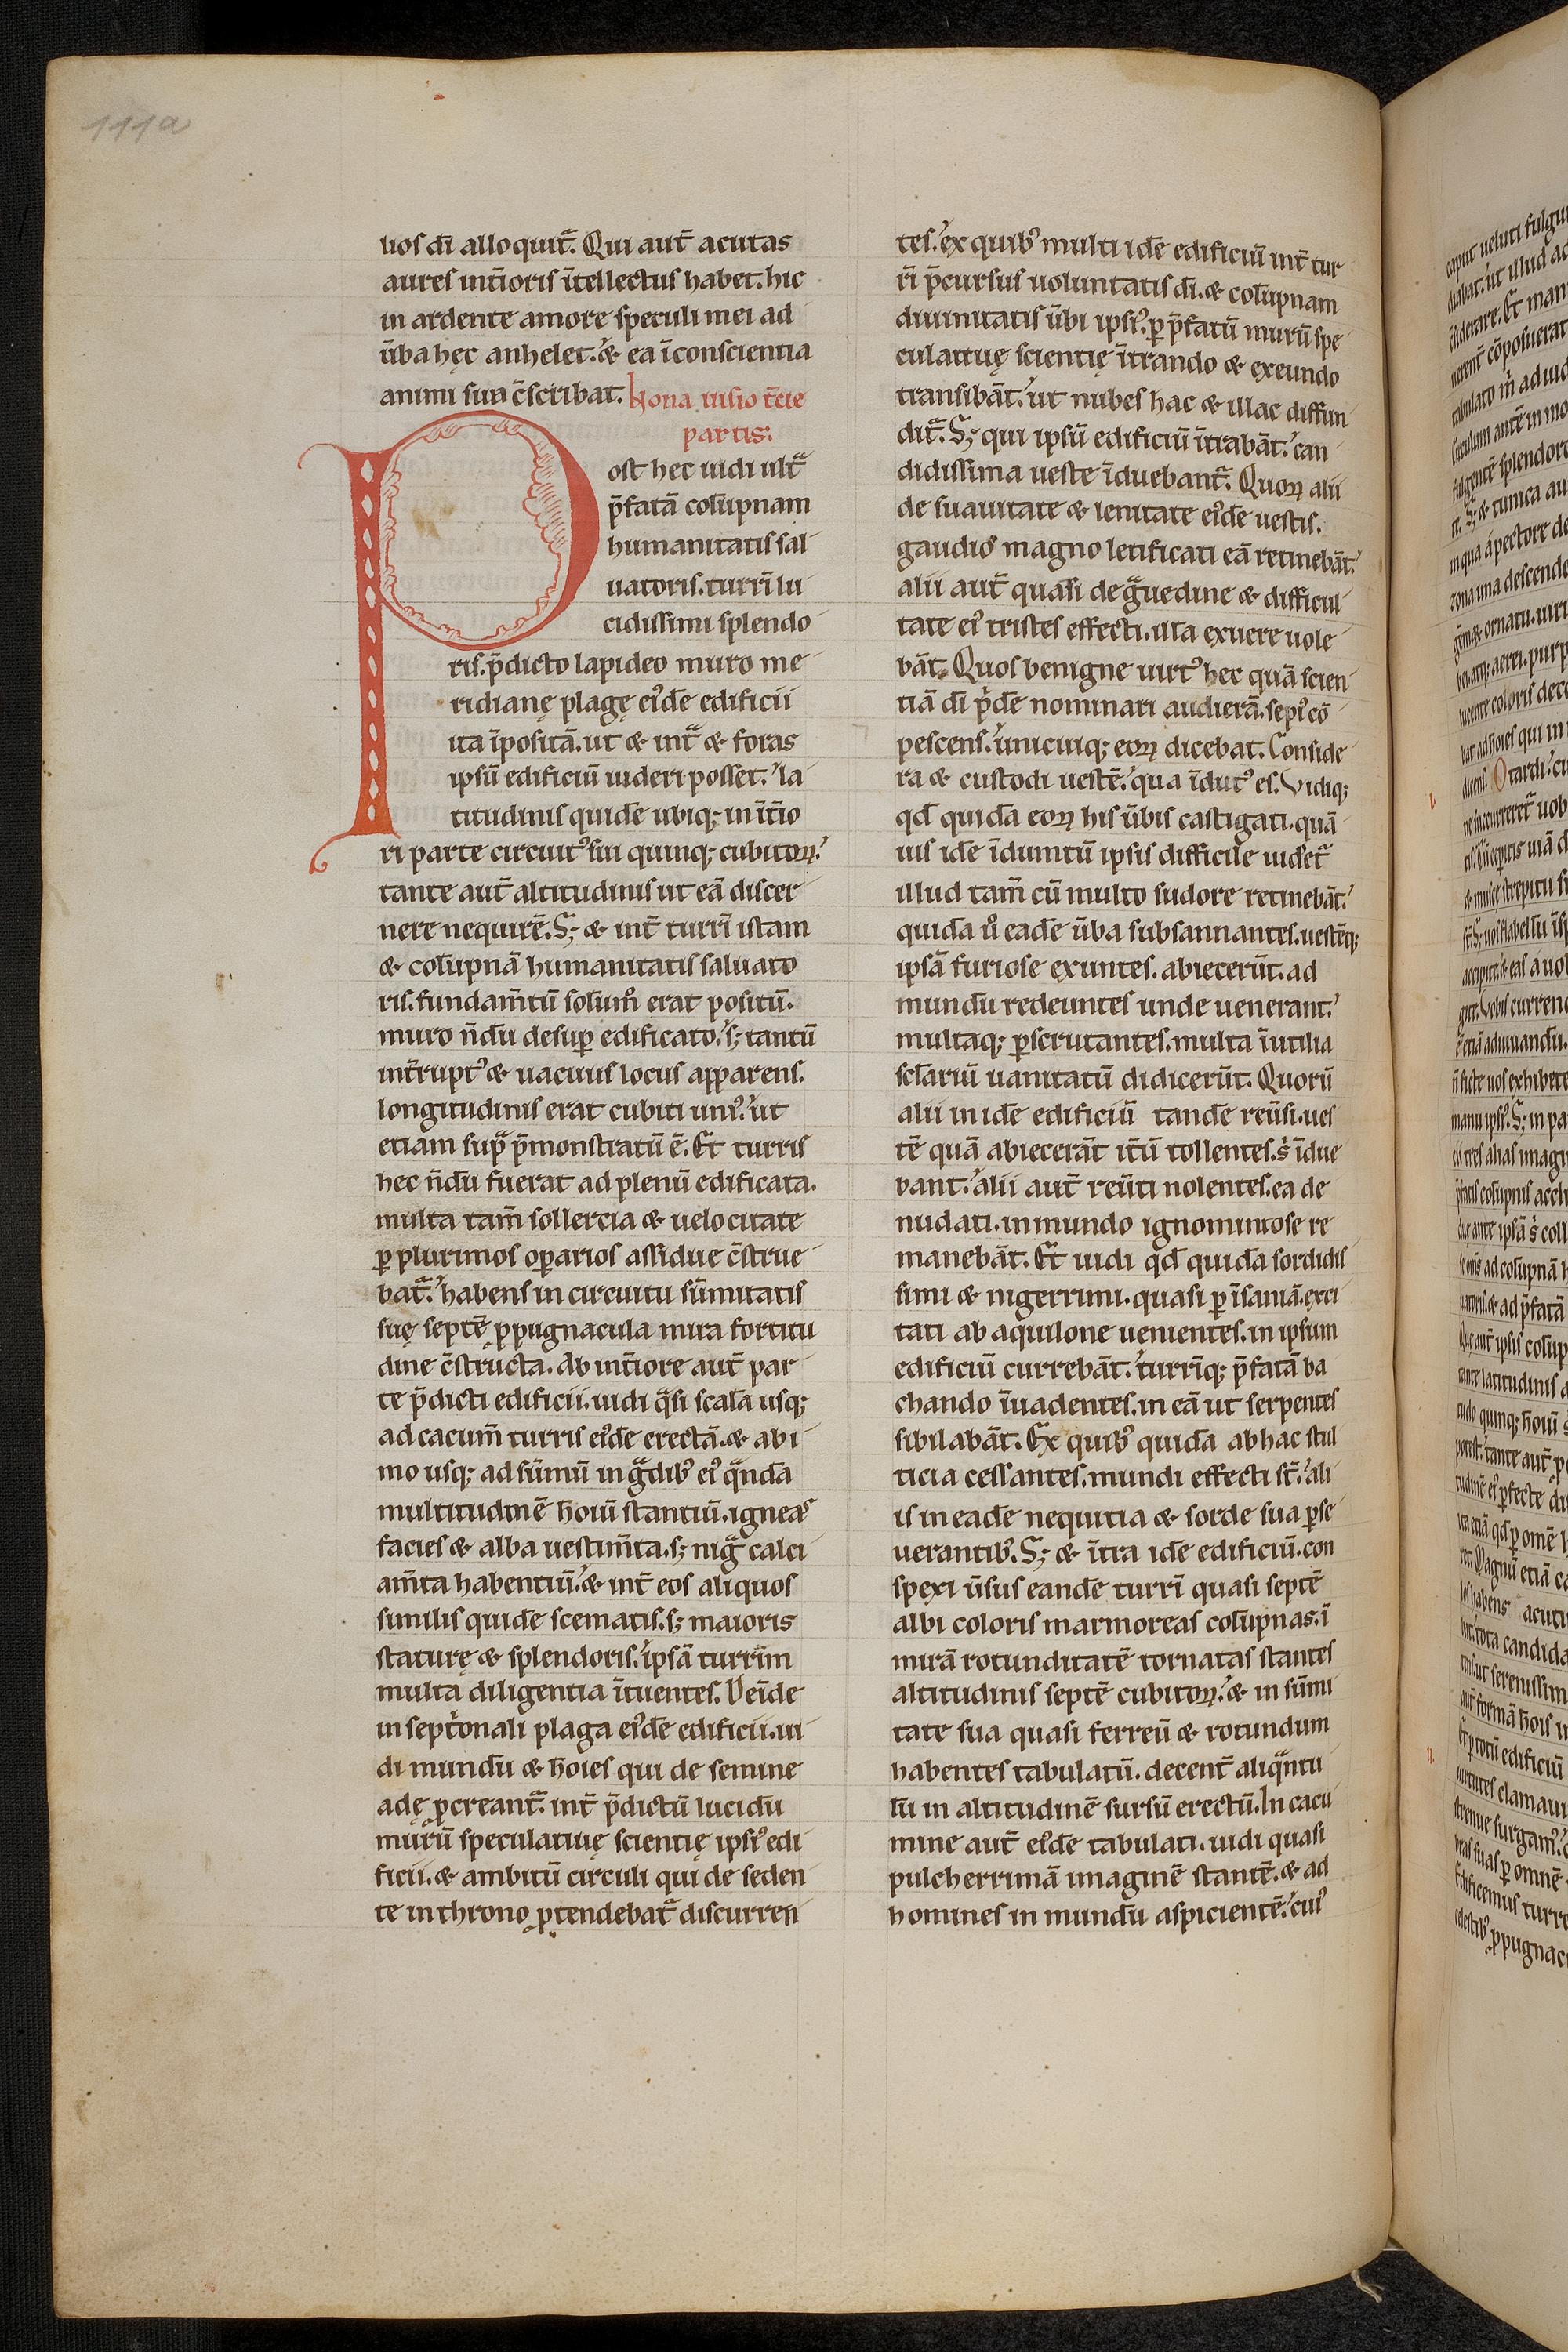 111a
uos dī alloquitᷓ. Qui aut̄ acutas
aures int̄ioris ītellectus habet. hic
in ardente amore speculi mei ad
ūba hęc anhelet.' & ea ī conscientia
animi sua c̄scribat. Nona uisio t̄cie
partis:
Post hec uidi ultᷓ
p̄fatā colūpnam
humanitatis sal
uatoris. turrī lu
cidissimi splendo
ris. p̄dicto lapideo muro me
ridianę plagę eiꝰdē edificii
ita īpositā. ut & intᷓ & foras
ipsū edificiū uideri posset.' la
titudinis quidē ubiq; in īt̄io
ri parte circuitꝰ sui quinq; cubitoꝝ.'
tante aut̄ altitudinis ut eā discer
nere nequirē. S; & int̄ turrī istam
& colūpnā humanitatis saluato
ris. fundam̄tū solūm̊ erat positū.
muro n̄dū desuꝑ edificato.' s; tantū
int̄ruptꝰ & uacuus locus apparens.
longitudinis erat cubiti uniꝰ.' ut
etiam supᷓ p̄monstratū ē. Et turris
hec n̄dū fuerat ad plenū edificata.
multa tam̄ sollertia & uelocitate
ꝑ plurimos oꝑarios assidue c̄strue
batᷓ.' habens in circuitu sūmitatis
suę septē ꝓpugnacula mira fortitu
dine c̄structa. Ab int̄iore aut̄ par
te p̄dicti edificii. uidi qᷓsi scalā usq;
ad cacum̄ turris eiꝰdē erectā. & ab i
mo usq; ad sūmū in gᷓdibꝰ eiꝰ qᷓndā
multitudinē hoīuī stantiū. igneas
facies & alba uestim̄ta. s; nigᷓ calci
am̄ta habentiū.' & int̄ eos aliquos
similis quidē scematis. s; maioris
staturę & splendoris.' ipsā turrim
multa diligentia ītuentes. Deīde
in sept̄onali plaga eiꝰdē edificii. ui
di mundū & hoīes qui de semine
adę ꝓcreantᷓ. int̄ p̄dictū lucidū
murū speculatiuę scientię ipsiꝰ edi
ficii. & ambitū circuli qui de seden
te in throno ꝓtendebatᷓ discurren
tes.' ex quibꝰ multi idē edificiū int̄ tur
rī p̄cursus uoluntatis dī. & colūpnam
diuinitatis ūbi ipsiꝰ. ꝑ p̄fatū murū spe
culatiuę scientię ītrando & exeundo
transibāt.' ut nubes hac & illac diffun
ditᷓ. S; qui ipsū edificiū ītrabāt.' can
didissima ueste īduebantᷓ. Quoꝝ alii
de suauitate & lenitate eiꝰdē uestis.
gaudio magno letificati eā retinebāt.'
alii aut̄ quasi de gᷓuedine & difficul
tate eiꝰ tristes effecti. illā exuere uole
bāt. Quos benigne uirtꝰ hec quā scien
tiā dī p̄dē nominari audierā. sepiꝰ cō
pescens.' unicuiq; eoꝝ dicebat. Conside
ra & custodi uestē.' qua īdutꝰ es. Vidiq;
qd̄ quidā eoꝝ his ūbis castigati. quā
uis idē īdumtū ipsis difficile uidetᷓ
illud tam̄ cū multo sudore retinebāt.'
quidā u̇ eadē ūba subsannantes. uestēq;
ipsā furiose exuntes. abiecerūt. ad
mundū redeuntes unde uenerant.'
multaq; ꝑscrutantes. multa īutilia
sc̄lariū uanitatū didicerūt. Quorū
alii in idē edificiū tandē reūsi. ues
tē quā abiecerāt it̄ū tollentes. s' īdue
bant.' alii aut̄ reūti nolentes. ea de
nudati. in mundo ignominiose re
manebāt. Et uidi qd̄ quidā sordidis
simi & nigerrimi. quasi ꝑ īsaniā. exci
tati ab aquilone uenientes. in ipsum
edificiū currebāt.' turrīq; p̄fatā ba
chando īuadentes. in eā ut serpentes
sibilabāt. Ex quibꝰ quidā ab hac stul
ticia cessantes. mundi effecti st̄.' ali
is in eadē nequitia & sorde sua ꝑse
uerantibꝰ. S; & ītra idē edificiū. con
spexi ūsus eandē turrī quasi septē
albi coloris marmoreas colūpnas. ī
mirā rotunditatē tornatas stantes
altitudinis septē cubitoꝝ.' & in sūmi
tate sua quasi ferreū & rotundum
habentes tabulatū. decent̄ aliqᷓntu
lū in altitudinē sursū erectū. In cacu
mine aut̄ eiꝰdē tabulati. uidi quasi
pulcherrimā imaginē stantē. & ad
homines in mundū aspicientē.' cuiꝰ